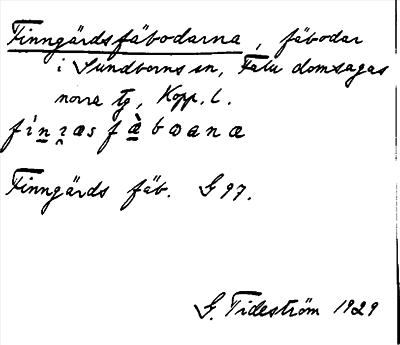 Finngärdsfäbodarna, fäbodar
i Sundborns sn, Falu domsagas
norra tg, Kopp. l.
fìnɪæs fæ̀bɷana
Finngärds fäb. G 97.
G. Tideström 1929